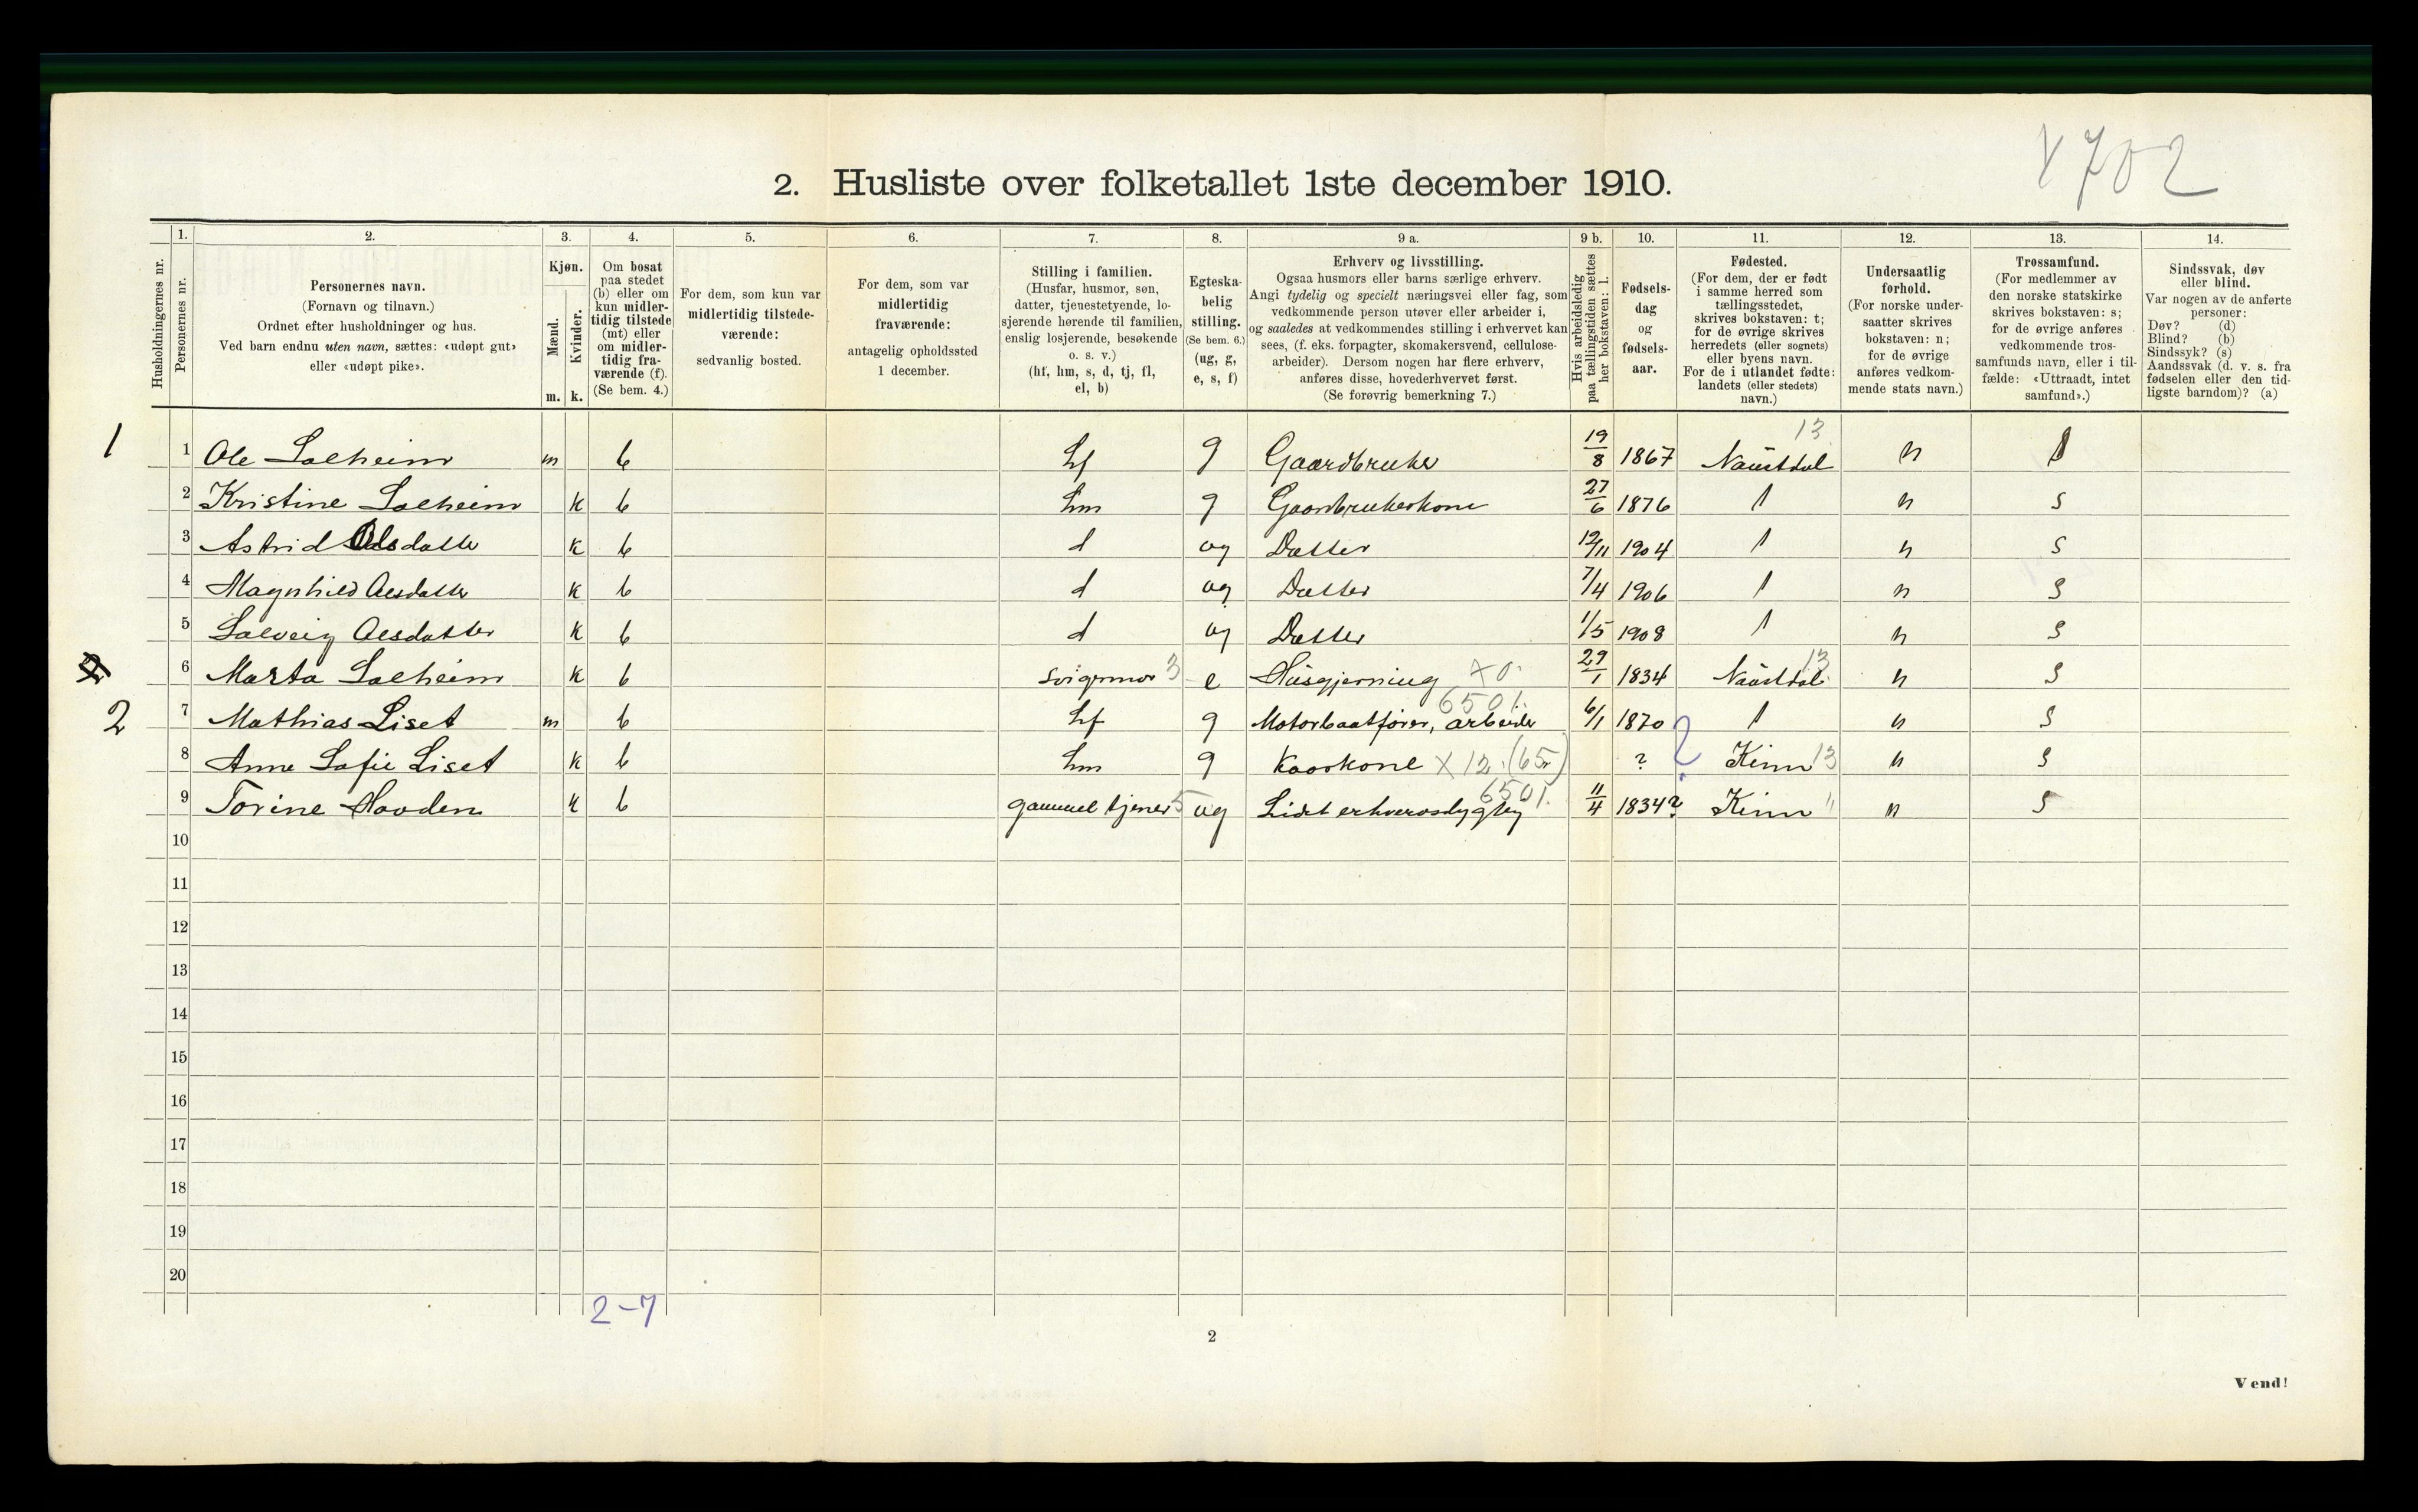 X702
2. Husliste over folketallet 1ste december 1910.
Husholdningernes nr.
1. Personernes nr.
2. Personernes navn.
(Fornavn og tilnavn.)
Ordnet efter husholdninger og hus.
Ved barn endnu uten navn, sættes: «udøpt gut»
eller «udøpt pike».
3. Kjøn.
Mænd. Kvinder.
m. k.
4. Om bosat
paa stedet
(b) eller om
kun midler-
tidig tilstede
(mt) eller
om midler-
tidig fra-
værende (f).
(Se bem. 4.)
5. For dem, som kun var
midlertidig tilstede-
værende:
sedvanlig bosted.
6. For dem, som var
midlertidig
fraværende:
antagelig opholdssted
1 december.
7. Stilling i familien.
(Husfar, husmor, søn,
datter, tjenestetyende, lo-
sjerende hørende til familien,
enslig losjerende, besøkende
o. s. v.)
(hf, hm, s, d, tj, fl,
el, b)
8. Egteska-
belig
stilling.
(Se bem. 6.)
(ug, g,
e, s, f)
9 a. Erhverv og livsstilling.
Ogsaa husmors eller barns særlige erhverv.
Angi tydelig og specielt næringsvei eller fag, som
vedkommende person utøver eller arbeider i,
og saaledes at vedkommendes stilling i erhvervet kan
sees, (f. eks. forpagter, skomakersvend, cellulose-
arbeider). Dersom nogen har flere erhverv,
anføres disse, hovederhvervet først.
(Se forøvrig bemerkning 7.)
9 b. Hvis arbeidsledig
paa tællingstiden sættes
her bokstaven: l.
10. Fødsels-
dag
og
fødsels-
aar.
11. Fødested.
(For dem, der er født
i samme herred som
tællingsstedet,
skrives bokstaven: t;
for de øvrige skrives
herredets (eller sognets)
eller byens navn.
For de i utlandet fødte:
landets (eller stedets)
navn.)
12. Undersaatlig
forhold.
(For norske under-
saatter skrives
bokstaven: n;
for de øvrige
anføres vedkom-
mende stats navn.)
13. Trossamfund.
(For medlemmer av
den norske statskirke
skrives bokstaven: s;
for de øvrige anføres
vedkommende tros-
samfunds navn, eller i til-
fælde: «Uttraadt, intet
samfund».)
14. Sindssvak, døv
eller blind.
Var nogen av de anførte
personer:
Døv? (d)
Blind? (b)
Sindssyk? (s)
Aandssvak (d. v. s. fra
fødselen eller den tid-
ligste barndom)? (a)
1 1 Ole Solheim m b hf g Gaardbruker 19/8 1867 Naustdal 13 n
2 Kristine Solheim k b hm g Gaardbrukerkone 27/6 1876 t n s
3 Astrid Olsdatter k b d ug Datter 12/11 1904 t n s
4 Magnhild Olesdatter k b d ug Datter 7/4 1906 t n s
5 Solveig Olesdatter k b d ug Datter 1/5 1908 t n s
6 Marta Solheim k b svigermor 3 e Husgjerning X 0 29/1 1834 Naustdal 13 n s
2 7 Mathias Liset m b hf g Motorbaatfører, arbeider 6501. 6/1 1870 t n s
8 Anne Sofie Liset k b hm g Kaarkone X 12. (65) ? ? Kinn 13 n s
9 Torine Hovden k b gammel tjener 5 ug Lidet erhvervsdygtig 6501. 11/4 1834? Kinn " n s
10
11
12
13
14
15
16
17
18
19
20
2-7
2
Vend!